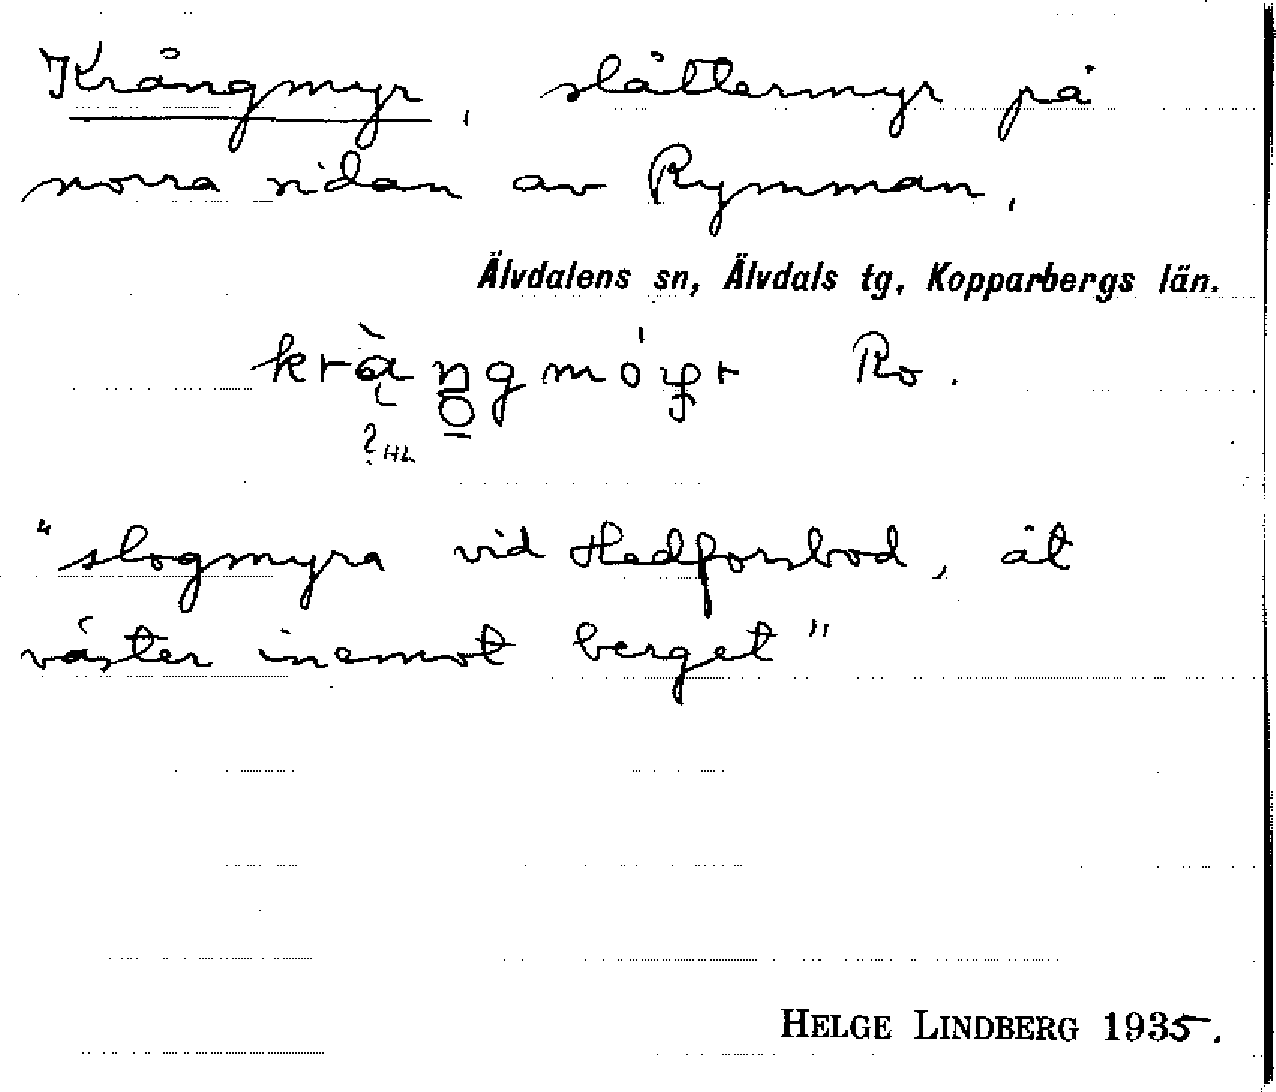 Krångmyr, slåttermyr på
norra sidan av Rymman.
Älvdalens sn, Älvdals tg, Kopparbergs län.
Ro.
? HL
"slogmyra vid Hedforsbod, åt
väster inemot berget"
HELGE LINDBERG 1935.